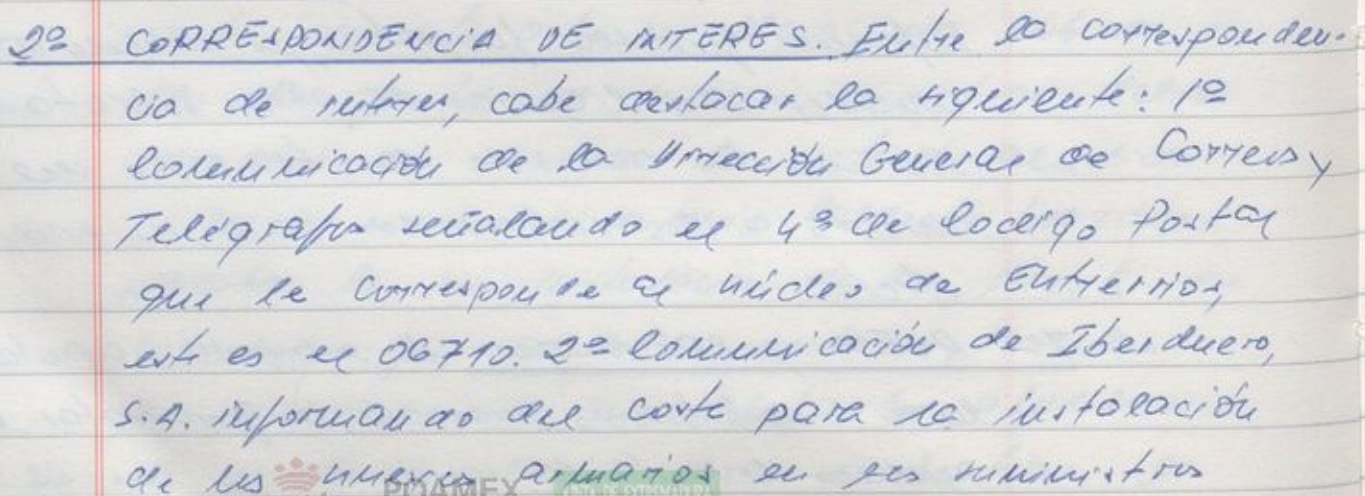 2º CORRESPONDENCIA DE INTERES. Entre la corresponden-
cia de interes, cabe destacar la siguiente: 1º
Comunicación de la Dirección General de Correos y
Telégrafos señalando el nº de Codigo Postal
que le corresponde al núcleo de Entrerrios,
este es el 06710. 2º Comunicación de Iberduero,
S.A. informando del coste para la instalación
de los nuevos armarios en los suministros